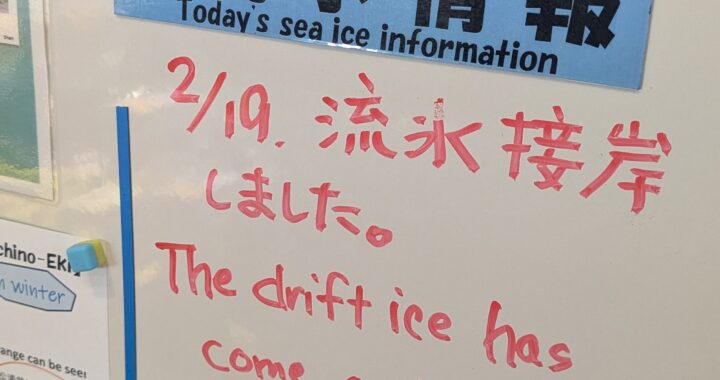 情報
Today's sea ice information
2/19. 流氷接岸
しました。
The drift ice has
come
chino-EKI
winter
ange can be see!